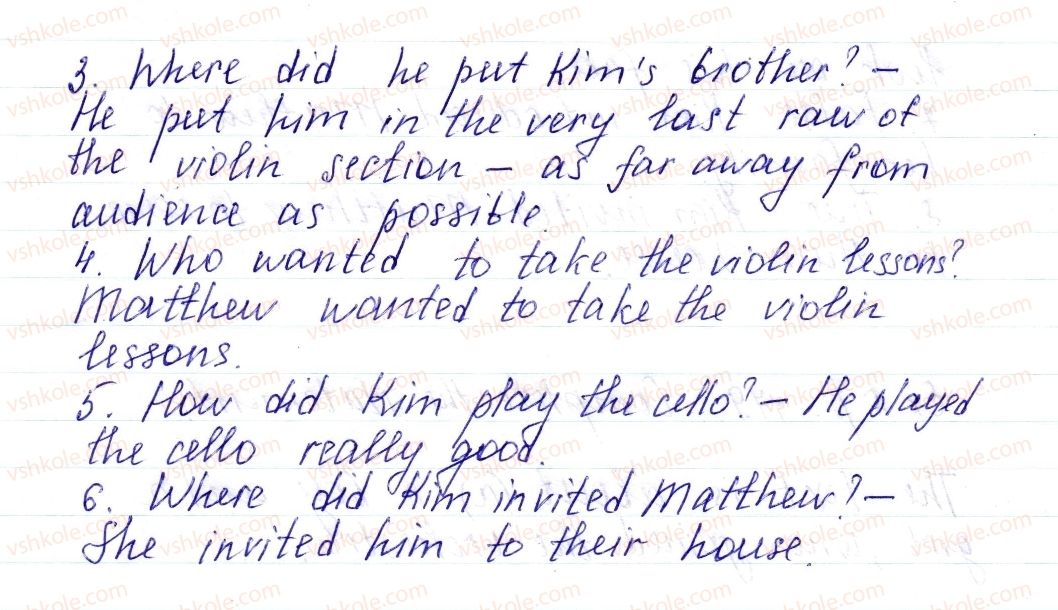 3. Where did he put Kim's brother? –
He put him in the very last raw of
the violin section – as far away from
audience as possible.
4. Who wanted to take the violin lessons?
Matthew wanted to take the violin
lessons.
5. How did Kim play the cello? – He played
the cello really good.
6. Where did Kim invited Matthew? –
She invited him to their house.